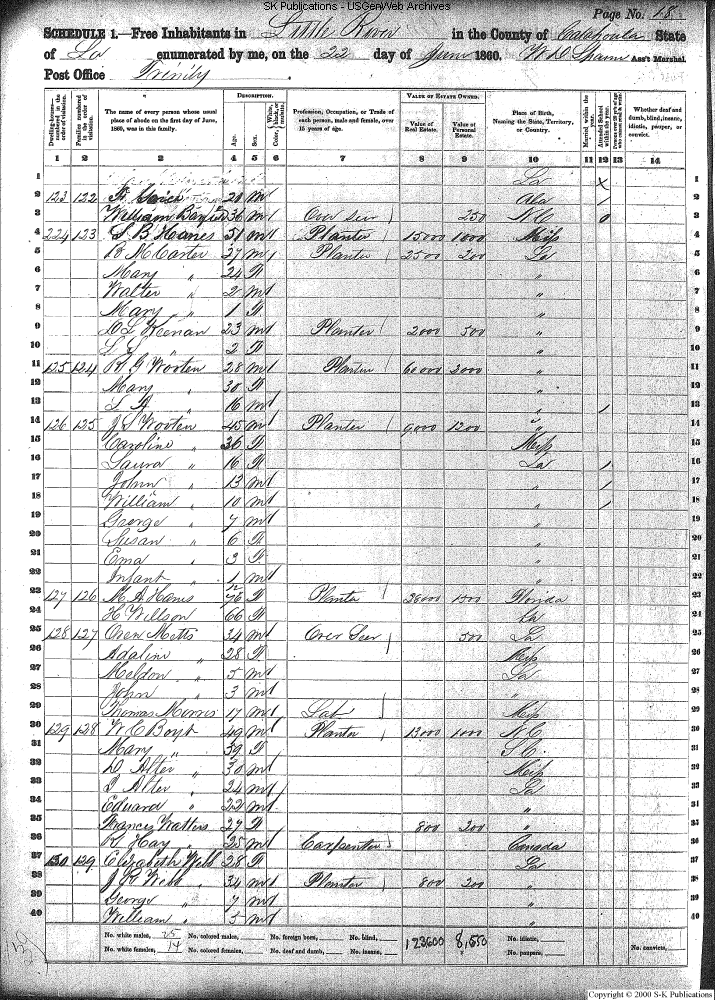 SK Publications - USGenWeb Archives
Page No. 48
SCHEDULE 1.—Free Inhabitants in Little River in the County of Catahoula State
of La enumerated by me, on the 22 day of June 1860. Ass't Marshal.
Post Office Trinity
Dwelling-houses—numbered in the order of visitation.
Families numbered in the order of visitation.
The name of every person whose usual place of abode on the first day of June, 1860, was in this family.
DESCRIPTION.
Age.
Sex.
Color, White, black, or mulatto.
Profession, Occupation, or Trade of each person, male and female, over 15 years of age.
VALUE OF ESTATE OWNED.
Value of Real Estate.
Value of Personal Estate.
Place of Birth, Naming the State, Territory, or Country.
Married within the year.
Attended School within the year.
Whether deaf and dumb, blind, insane, idiotic, pauper, or convict.
1 2 3 4 5 6 7 8 9 10 11 12 13 14
1 La 1
2 123 122 20 m Ala 2
3 William 36 m Over Seer 250 N C 3
4 224 123 S B Hanes 51 m Planter 15000 1000 Miss 4
5 R M Carter 37 m Planter 2500 200 La 5
6 Mary " 24 F " 6
7 Walter " 2 m " 7
8 Mary " 1 F " 8
9 Keenan 23 m Planter 2000 500 " 9
10 " 2 F " 10
11 125 124 R G Wooten 28 m Planter 60000 3000 " 11
12 Mary " 30 F " 12
13 " 16 m " 13
14 126 125 J S Wooten 45 m Planter 9000 1200 " 14
15 Caroline " 36 F Miss 15
16 Laura " 16 F La 16
17 John " 13 m " 17
18 William " 10 m " 18
19 George " 7 m " 19
20 Susan " 6 F " 20
21 Ema " 3 F " 21
22 Infant " m " 22
23 127 126 M A Hanes F Planter Florida 23
24 H Willson 66 F La 24
25 128 127 Oren Metts 34 m Over Seer 500 La 25
26 Adaline " 28 F Miss 26
27 Meldon " 5 m La 27
28 John " 3 m " 28
29 Thomas Morris 17 m Lab Miss 29
30 129 128 W C Boyt 49 m Planter 13000 1000 N C 30
31 Mary " 39 F S C 31
32 D Alter " 30 m Miss 32
33 Alter " 24 m La 33
34 Eduard " 22 m " 34
35 Frances Watters 27 F 800 200 " 35
36 Hay 25 m Carpenter Canada 36
37 130 129 Elizabeth Webb 28 F La 37
38 J R Webb 34 m Planter 800 200 " 38
39 George " 7 m " 39
40 William " 5 m " 40
No. white males, 25 No. colored males, No. foreign born, No. blind, 123600 8,550 No. idiotic,
No. white females, 14 No. colored females, No. deaf and dumb, No. insane, No. paupers, No. convicts,
Copyright © 2000 S-K Publications